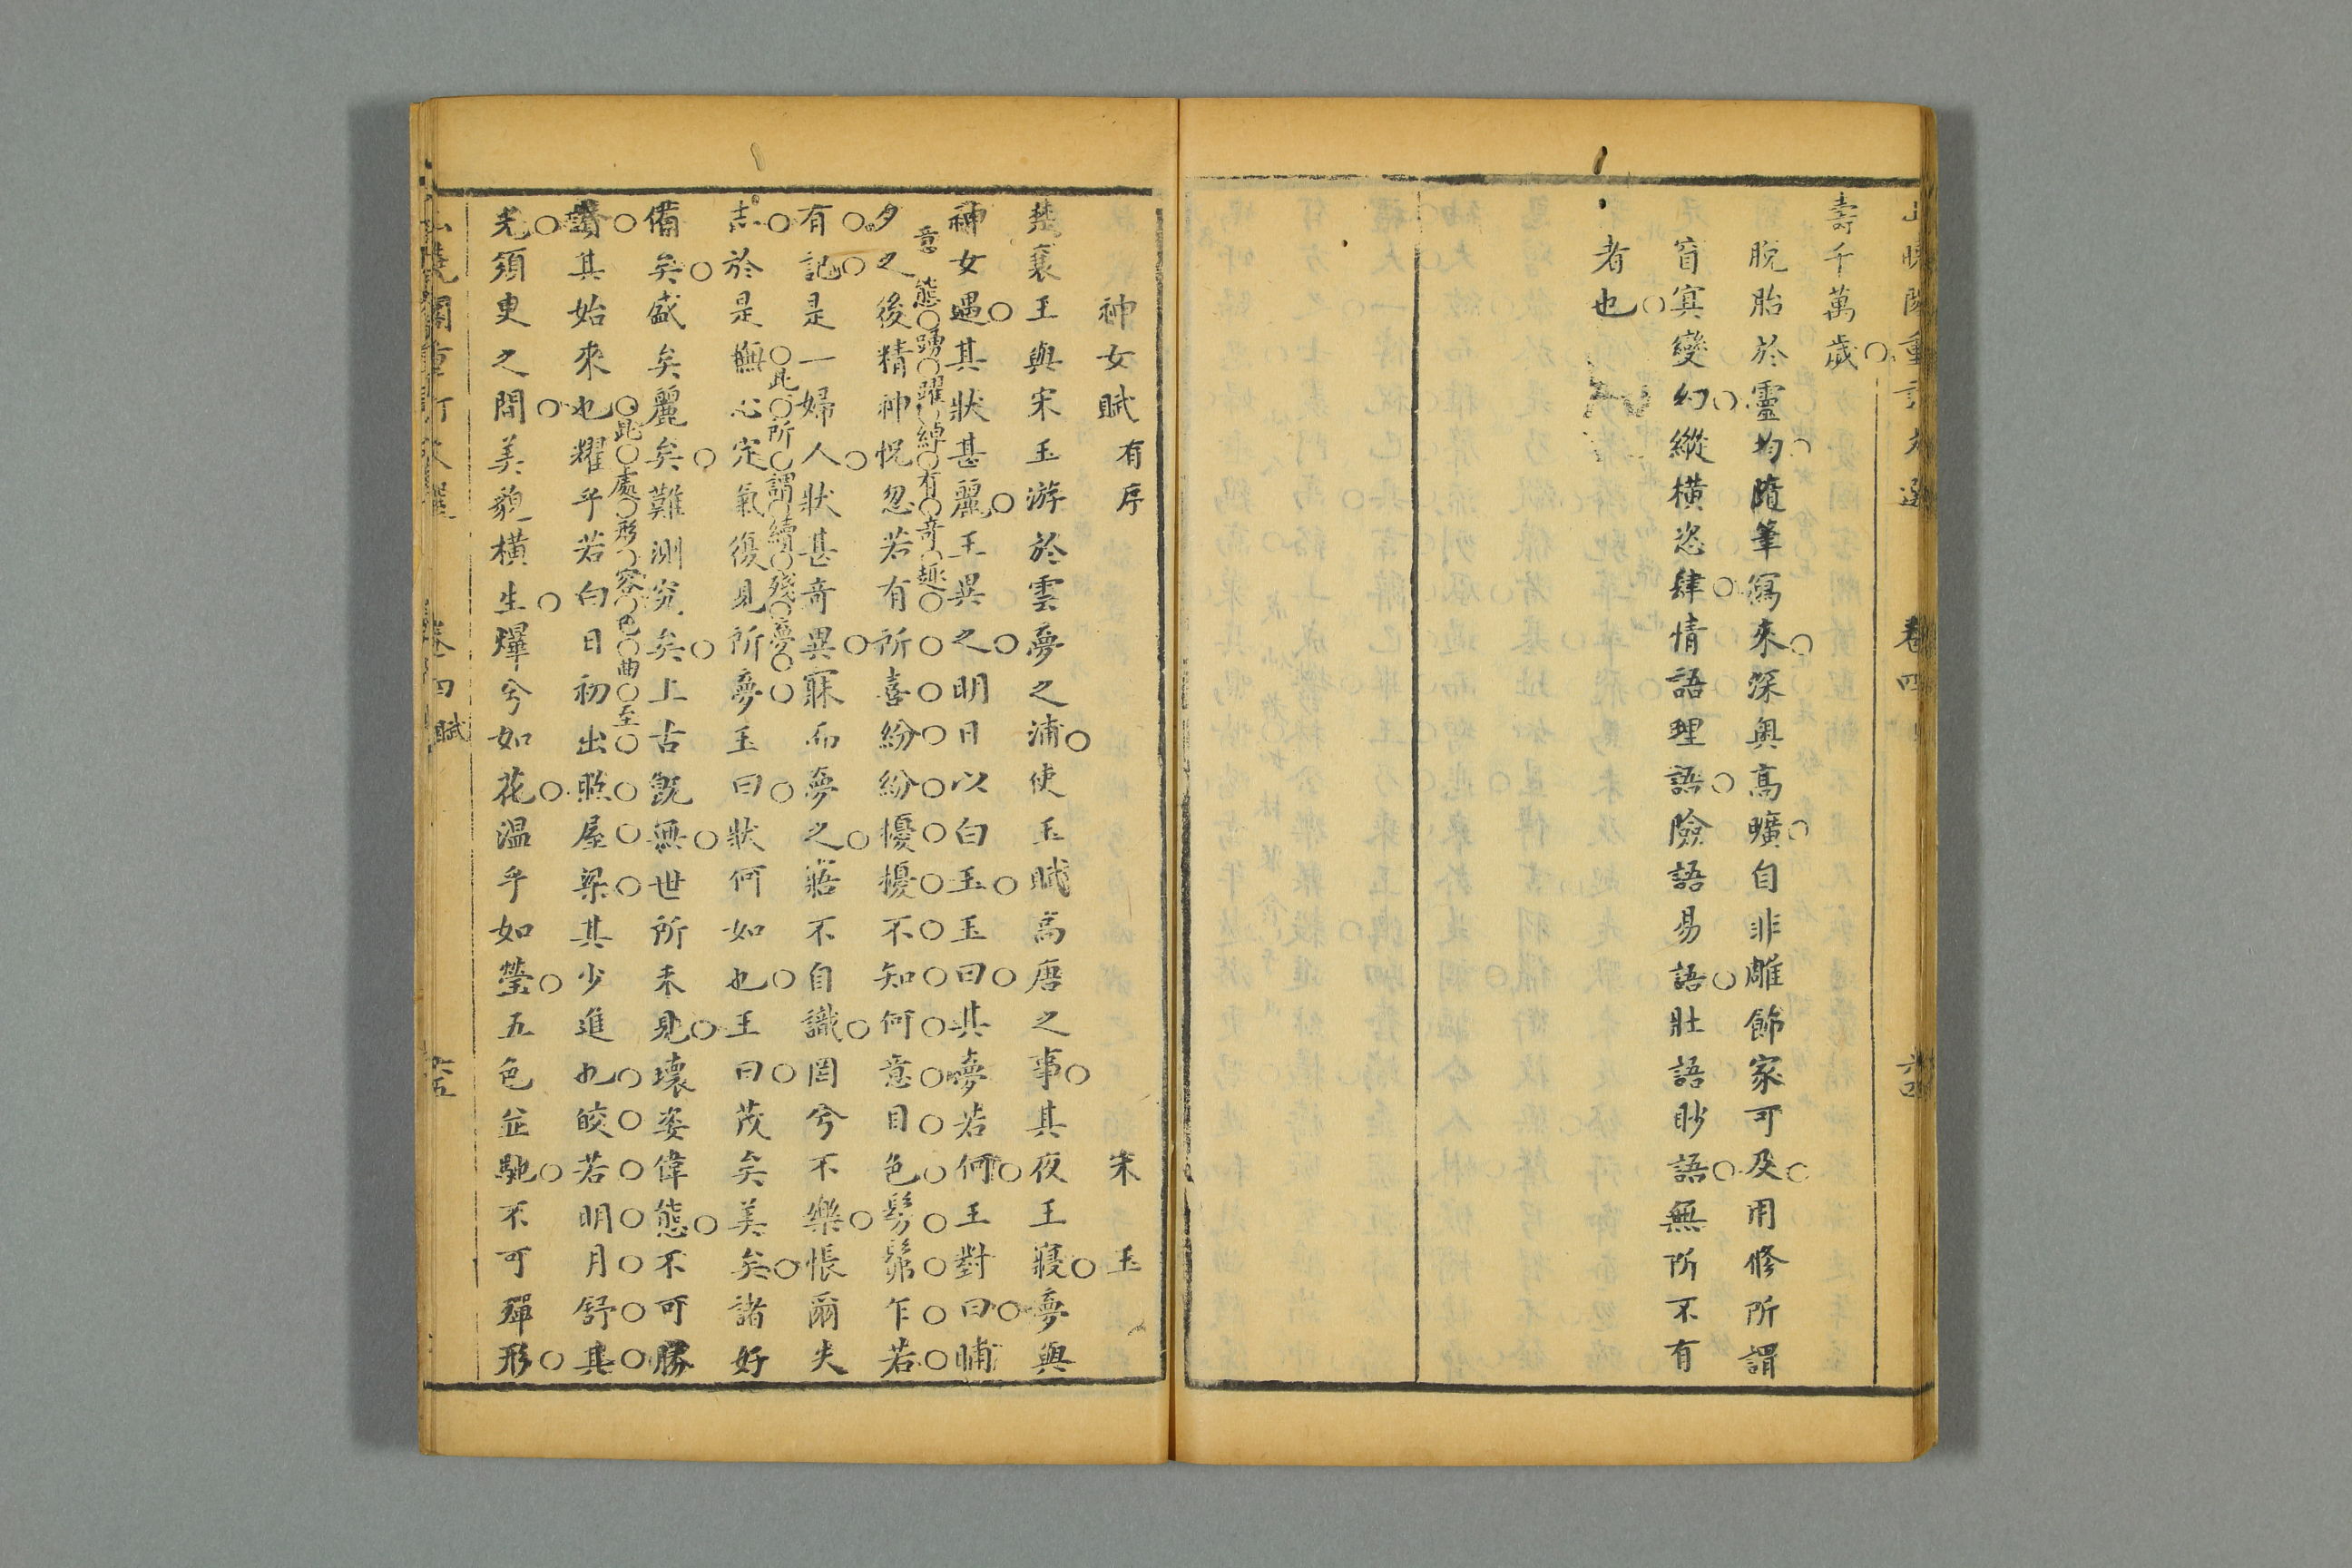 壽千萬歲
脫胎於靈均隨筆寫來深奥高曠自非雕飾家可及用修所謂
窅冥變幻縱橫恣肆情語理語險語易語壯語眇語無所不有
者也
卷四
六四
神女賦有序 宋玉
楚襄王與宋玉游於雲夢之浦使玉賦高唐之事其夜王寢夢與
神女遇其狀甚麗王異之明日以白玉玉曰其夢若何王對曰晡
意態踴躍綽有奇趣
夕之後精神怳忽若有所喜紛紛擾擾不知何意目色髣髴乍若
有記是一婦人狀甚奇異寐而夢之寤不自識罔兮不樂悵爾失
此所謂續殘夢
志於是撫心定氣復見所夢玉曰狀何如也王曰茂矣美矣諸好
備矣盛矣麗矣難測究矣上古旣無世所未見瓌姿偉態不可勝
此處形容也曲至
賛其始來也耀乎若白日初出照屋梁其少進也皎若明月舒其
光須臾之間美貌橫生爗兮如花溫乎如瑩五色並馳不可殫形
卷四 賦
六五